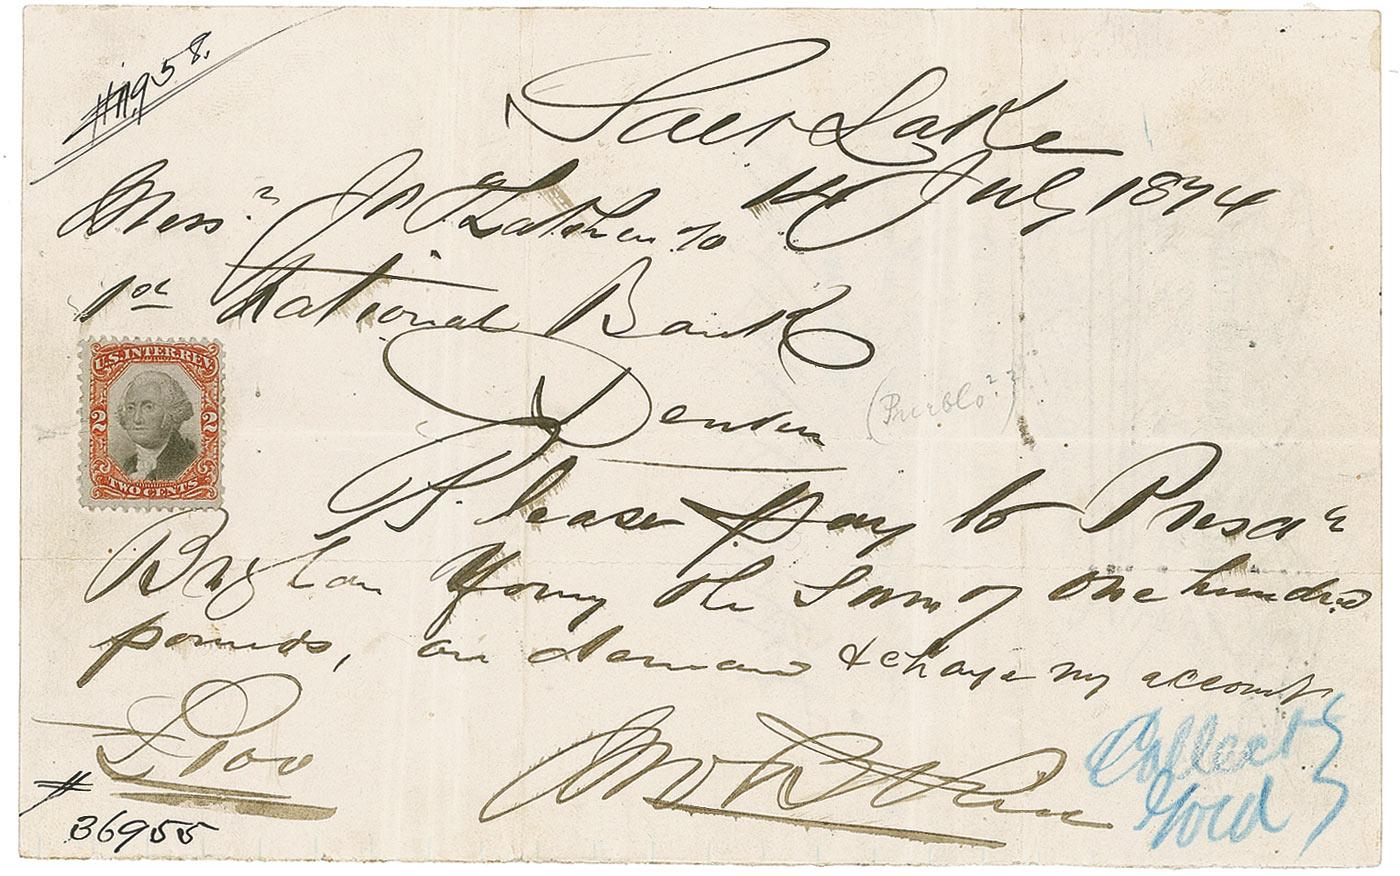 #11958.
Salt Lake
14 July 1874
Mess.rs Thatcher to
1st National Bank
Denver
(Pueblo??)
U.S. INTER. REV.
2 2
TWO CENTS
Please pay to Presdt
Brigham Young the sum of one hundred
pounds, on demand & charge my account
£100
Collect
Gold
#
36955